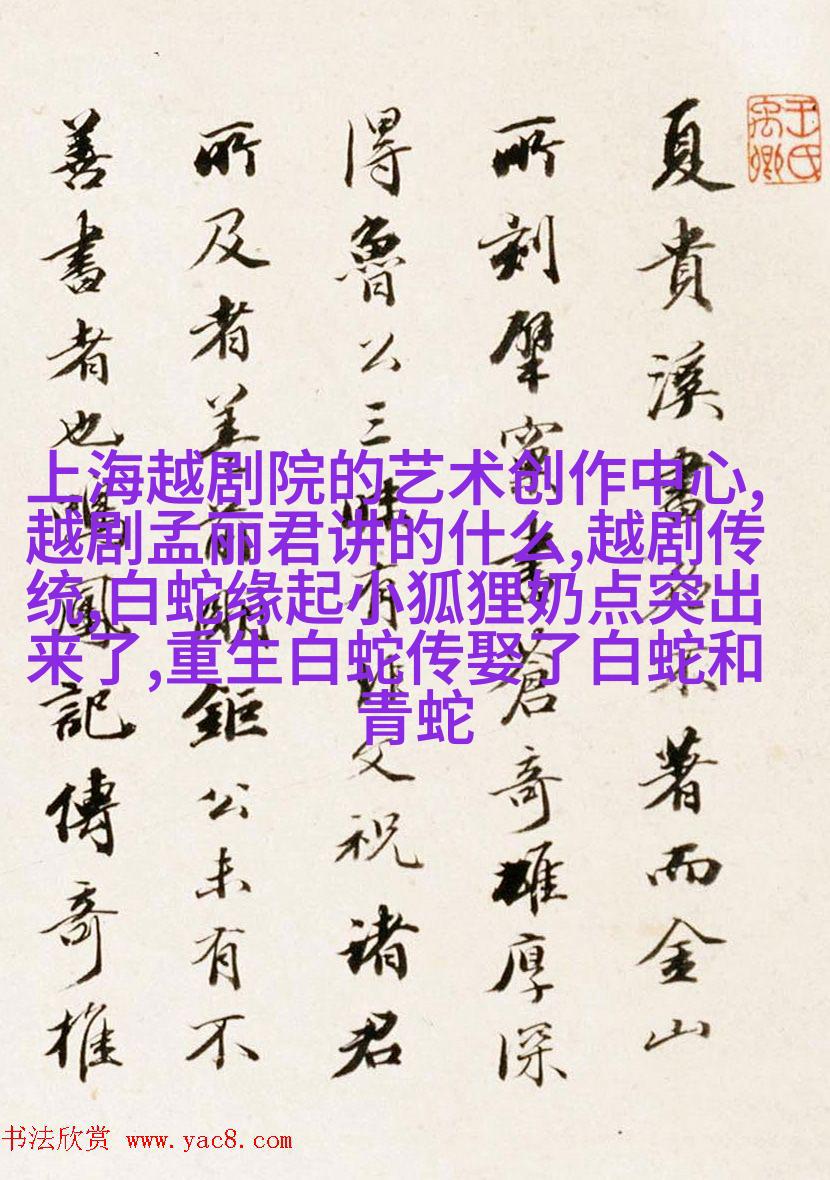 夏貴溪書名不著而金山
所刻擘窠書蒼奇雄厚深
得魯公三昧有文祝諸君
所及者蓋前明鉅公未有不
善書者也鳴鳳記傳奇推
王氏
禹卿
上海越剧院的艺术创作中心,
越剧孟丽君讲的什么,越剧传
统,白蛇缘起小狐狸奶点突出
来了,重生白蛇传娶了白蛇和
青蛇
书法欣赏 www.yac8.com